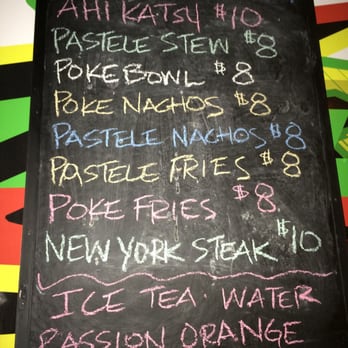 AHI KATSU $10
PASTELE STEW $8
POKE BOWL $8
POKE NACHOS $8
PASTELE NACHOS $8
PASTELE FRIES $8
POKE FRIES $8
NEW YORK STEAK $10
ICE TEA · WATER
PASSION ORANGE